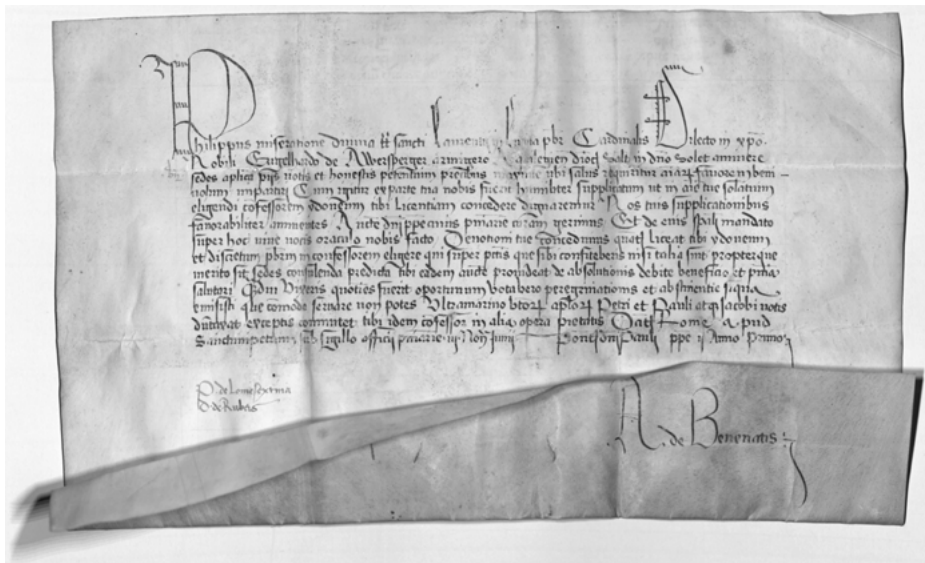 Philippus miseratione divina tt sancti Laurentii in Lucina pbr Cardinalis Dilecto in xpo
Nobili Engelhardo de Awersperger armigero diocs Saltm in dno Solet annuere
sedes aplica piis votis et honestis petentium precibus maxime ubi salus requiritur aiarum favorem beni-
volum impartiri Cum igitur ex parte tua nobis fuerit humiliter supplicatum ut in aie tue solatium
eligendi cofessorem ydoneum tibi Licentiam concedere dignaremur Nos tuis supplicationibus
favorabiliter annuentes Aucte dni ppe cuius pmarie curam gerimus Et de eius spali mandato
super hoc vive vocis oraculo nobis facto Devotioni tue concedimus quats Liceat tibi ydoneum
et discretum pbrm in confessorem eligere qui super pctis que sibi confiteberis nisi talia sint propter que
merito sit sedes consulenda predicta tibi eadem aucte provideat de absolutionis debite beneficio et pnia
salutari Qdiu vixeris quoties fuerit oportunum Vota vero peregrinationis et abstinentie siqua
emisisti que comode servare non potes Ultramarino btor aplor Petri et Pauli atq Jacobi votis
dutaxat exceptis commutet tibi idem cofessor in alia opera pietatis Dat Rome apud
Sanctumpetrum sub sigillo officii pnarie Non Junii Pont dni Pauli ppe ii Anno Primo
P. de
D. de Rubeis
A. de Benenatis